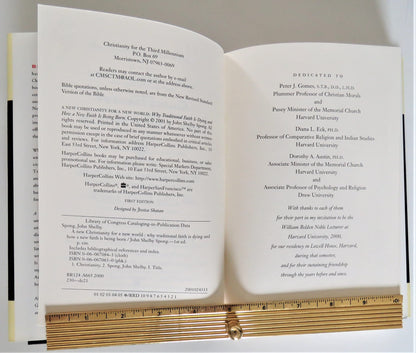 Christianity for the Third Millennium
P.O. Box 69
Morristown, NJ 07963-0069
Readers may contact the author by e-mail
at CMSCTM@AOL.com
Bible quotations, unless otherwise noted, are from the New Revised Standard
Version of the Bible.
A NEW CHRISTIANITY FOR A NEW WORLD: Why Traditional Faith Is Dying and
How a New Faith Is Being Born. Copyright © 2001 by John Shelby Spong. All
rights reserved. Printed in the United States of America. No part of this
book may be used or reproduced in any manner whatsoever without written
permission except in the case of brief quotations embodied in critical articles
and reviews. For information address HarperCollins Publishers, Inc., 10
East 53rd Street, New York, NY 10022.
HarperCollins books may be purchased for educational, business, or sales
promotional use. For information please write: Special Markets Department,
HarperCollins Publishers, Inc., 10 East 53rd Street, New York, NY 10022.
HarperCollins Web site: http://www.harpercollins.com
HarperCollins®, ®, and HarperSanFrancisco™ are
trademarks of HarperCollins Publishers, Inc.
FIRST EDITION
Designed by Jessica Shatan
Library of Congress Cataloging-in-Publication Data
Spong, John Shelby.
A new Christianity for a new world : why traditional faith is dying and
how a new faith is being born / John Shelby Spong.—1st ed.
p. cm.
Includes bibliographical references and index.
1. Christianity. 2. Spong, John Shelby. I. Title.
230—dc21
01 02 03 04 05 ❖/RRD 10 9 8 7 6 5 4 3 2 1
DEDICATED TO
Peter J. Gomes, S.T.B., D.D., L.H.D.
Plummer Professor of Christian Morals
and
Pusey Minister of the Memorial Church
Harvard University
Diana L. Eck, PH.D.
Professor of Comparative Religion and Indian Studies
Harvard University
Dorothy A. Austin, PH.D.
Associate Minister of the Memorial Church
Harvard University
and
Associate Professor of Psychology and Religion
Drew University
With thanks to each of them
for their part in my invitation to be the
William Belden Noble Lecturer at
Harvard University, 2000,
for our residency in Lowell House, Harvard,
during that semester,
and for their sustaining friendship
through the years before and since.
1 2 3 4 5 6 7 8 9